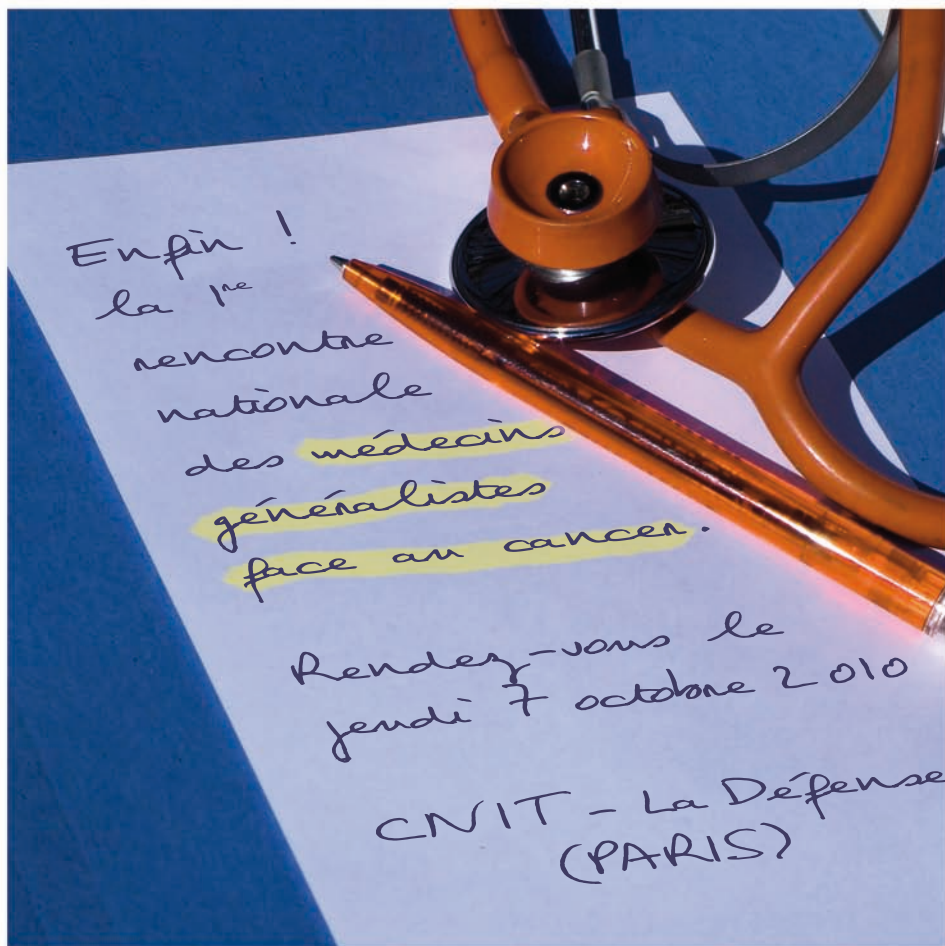 Enfin !
la 1re
rencontre
nationale
des médecins
généralistes
face au cancer.
Rendez-vous le
jeudi 7 octobre 2010
CNIT - La Défense
(PARIS)